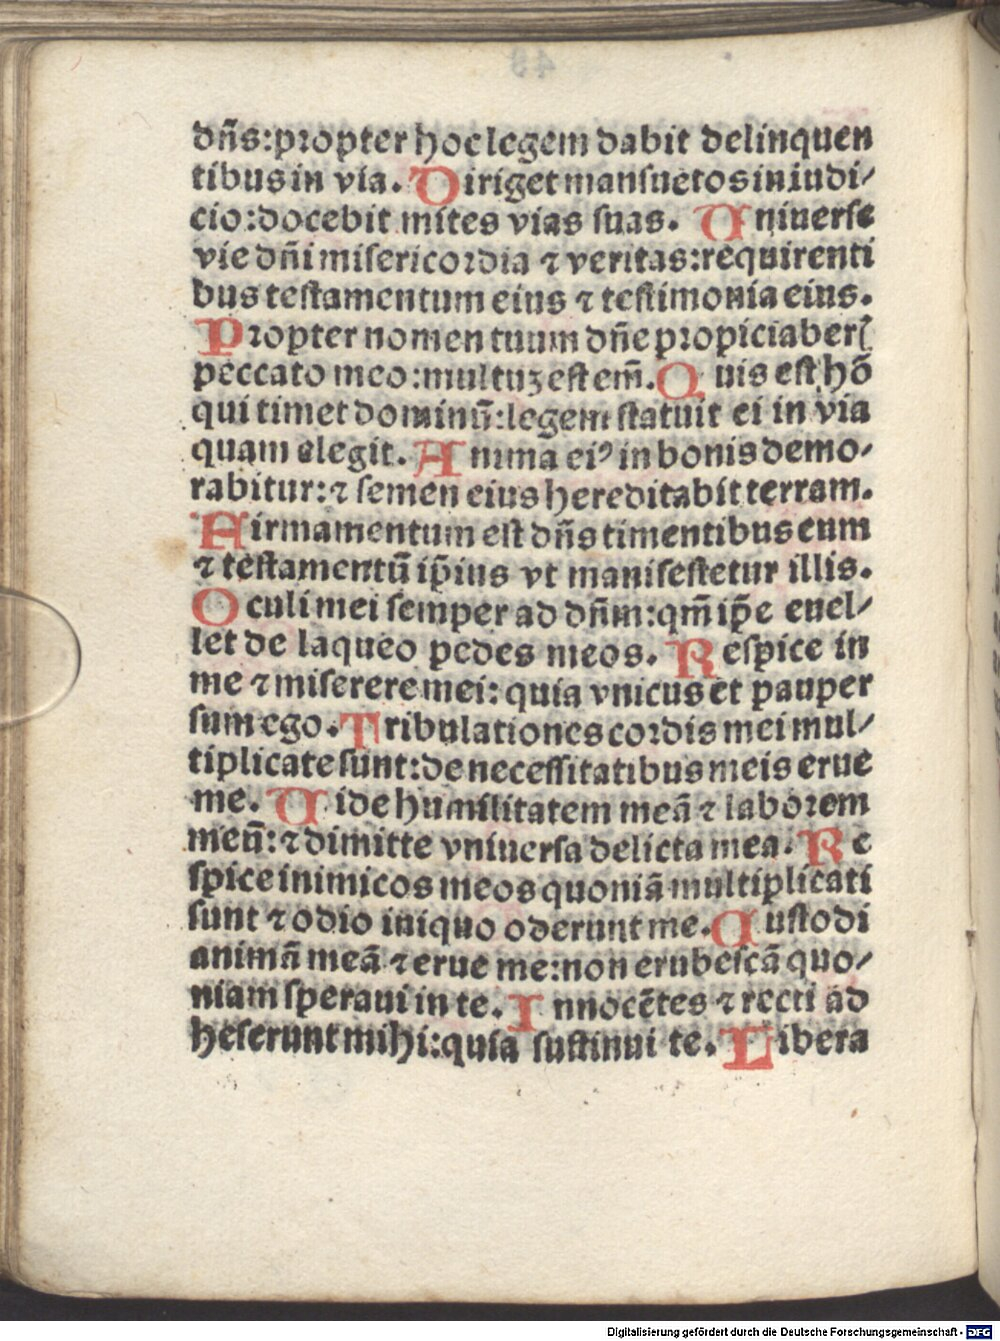 dn̄s:propter hoc legem dabit delinquen
tibus in via. Diriget mansuetos in iudi/
cio:docebit mites vias suas. Uniuerse
vie dn̄i misericordia ⁊ veritas:requirenti
bus testamentum eius ⁊ testimonia eius.
Propter nomen tuum dn̄e propiciaberꝭ
peccato meo:multuꝫ est em̄. Quis est hō
qui timet dominū:legem statuit ei in via
quam elegit. Anima eiꝰ in bonis demo/
rabitur:⁊ semen eius hereditabit terram.
Firmamentum est dn̄s timentibus eum
⁊ testamentū ip̄ius vt manifestetur illis.
Oculi mei semper ad dn̄m:qm̄ ip̄e euel/
let de laqueo pedes meos. Respice in
me ⁊ miserere mei: quia vnicus et pauper
sum ego. Tribulationes cordis mei mul/
tiplicate sunt:de necessitatibus meis erue
me. Uide humilitatem meā ⁊ laborem
meū: ⁊ dimitte vniuersa delicta mea. Re
spice inimicos meos quoniā multiplicati
sunt ⁊ odio iniquo oderunt me. Custodi
animā meā ⁊ erue me:non erubescā quo/
niam speraui in te. Innocētes ⁊ recti ad
heserunt mihi:quia sustinui te. Libera
Digitalisierung gefördert durch die Deutsche Forschungsgemeinschaft - DFG